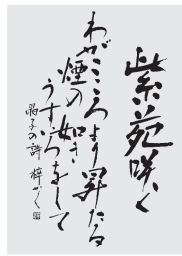 紫苑咲く
わがこころより昇たる
煙の如き
うすいろをして
晶子の詩 梓かく